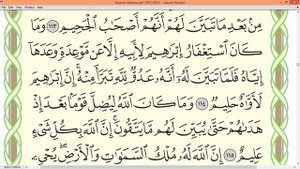 (SECURED) - Adobe Reader
File Edit View Window Help
مِنۢ بَعْدِ مَا تَبَيَّنَ لَهُمْ أَنَّهُمْ أَصْحَٰبُ ٱلْجَحِيمِ ١١٣ وَمَا
كَانَ ٱسْتِغْفَارُ إِبْرَٰهِيمَ لِأَبِيهِ إِلَّا عَن مَّوْعِدَةٍ وَعَدَهَآ
إِيَّاهُ فَلَمَّا تَبَيَّنَ لَهُۥٓ أَنَّهُۥ عَدُوٌّ لِّلَّهِ تَبَرَّأَ مِنْهُ ۚ إِنَّ إِبْرَٰهِيمَ
لَأَوَّٰهٌ حَلِيمٌ ١١٤ وَمَا كَانَ ٱللَّهُ لِيُضِلَّ قَوْمًۢا بَعْدَ إِذْ
هَدَىٰهُمْ حَتَّىٰ يُبَيِّنَ لَهُم مَّا يَتَّقُونَ ۚ إِنَّ ٱللَّهَ بِكُلِّ شَىْءٍ
عَلِيمٌ ١١٥ إِنَّ ٱللَّهَ لَهُۥ مُلْكُ ٱلسَّمَٰوَٰتِ وَٱلْأَرْضِ ۖ يُحْىِۦ